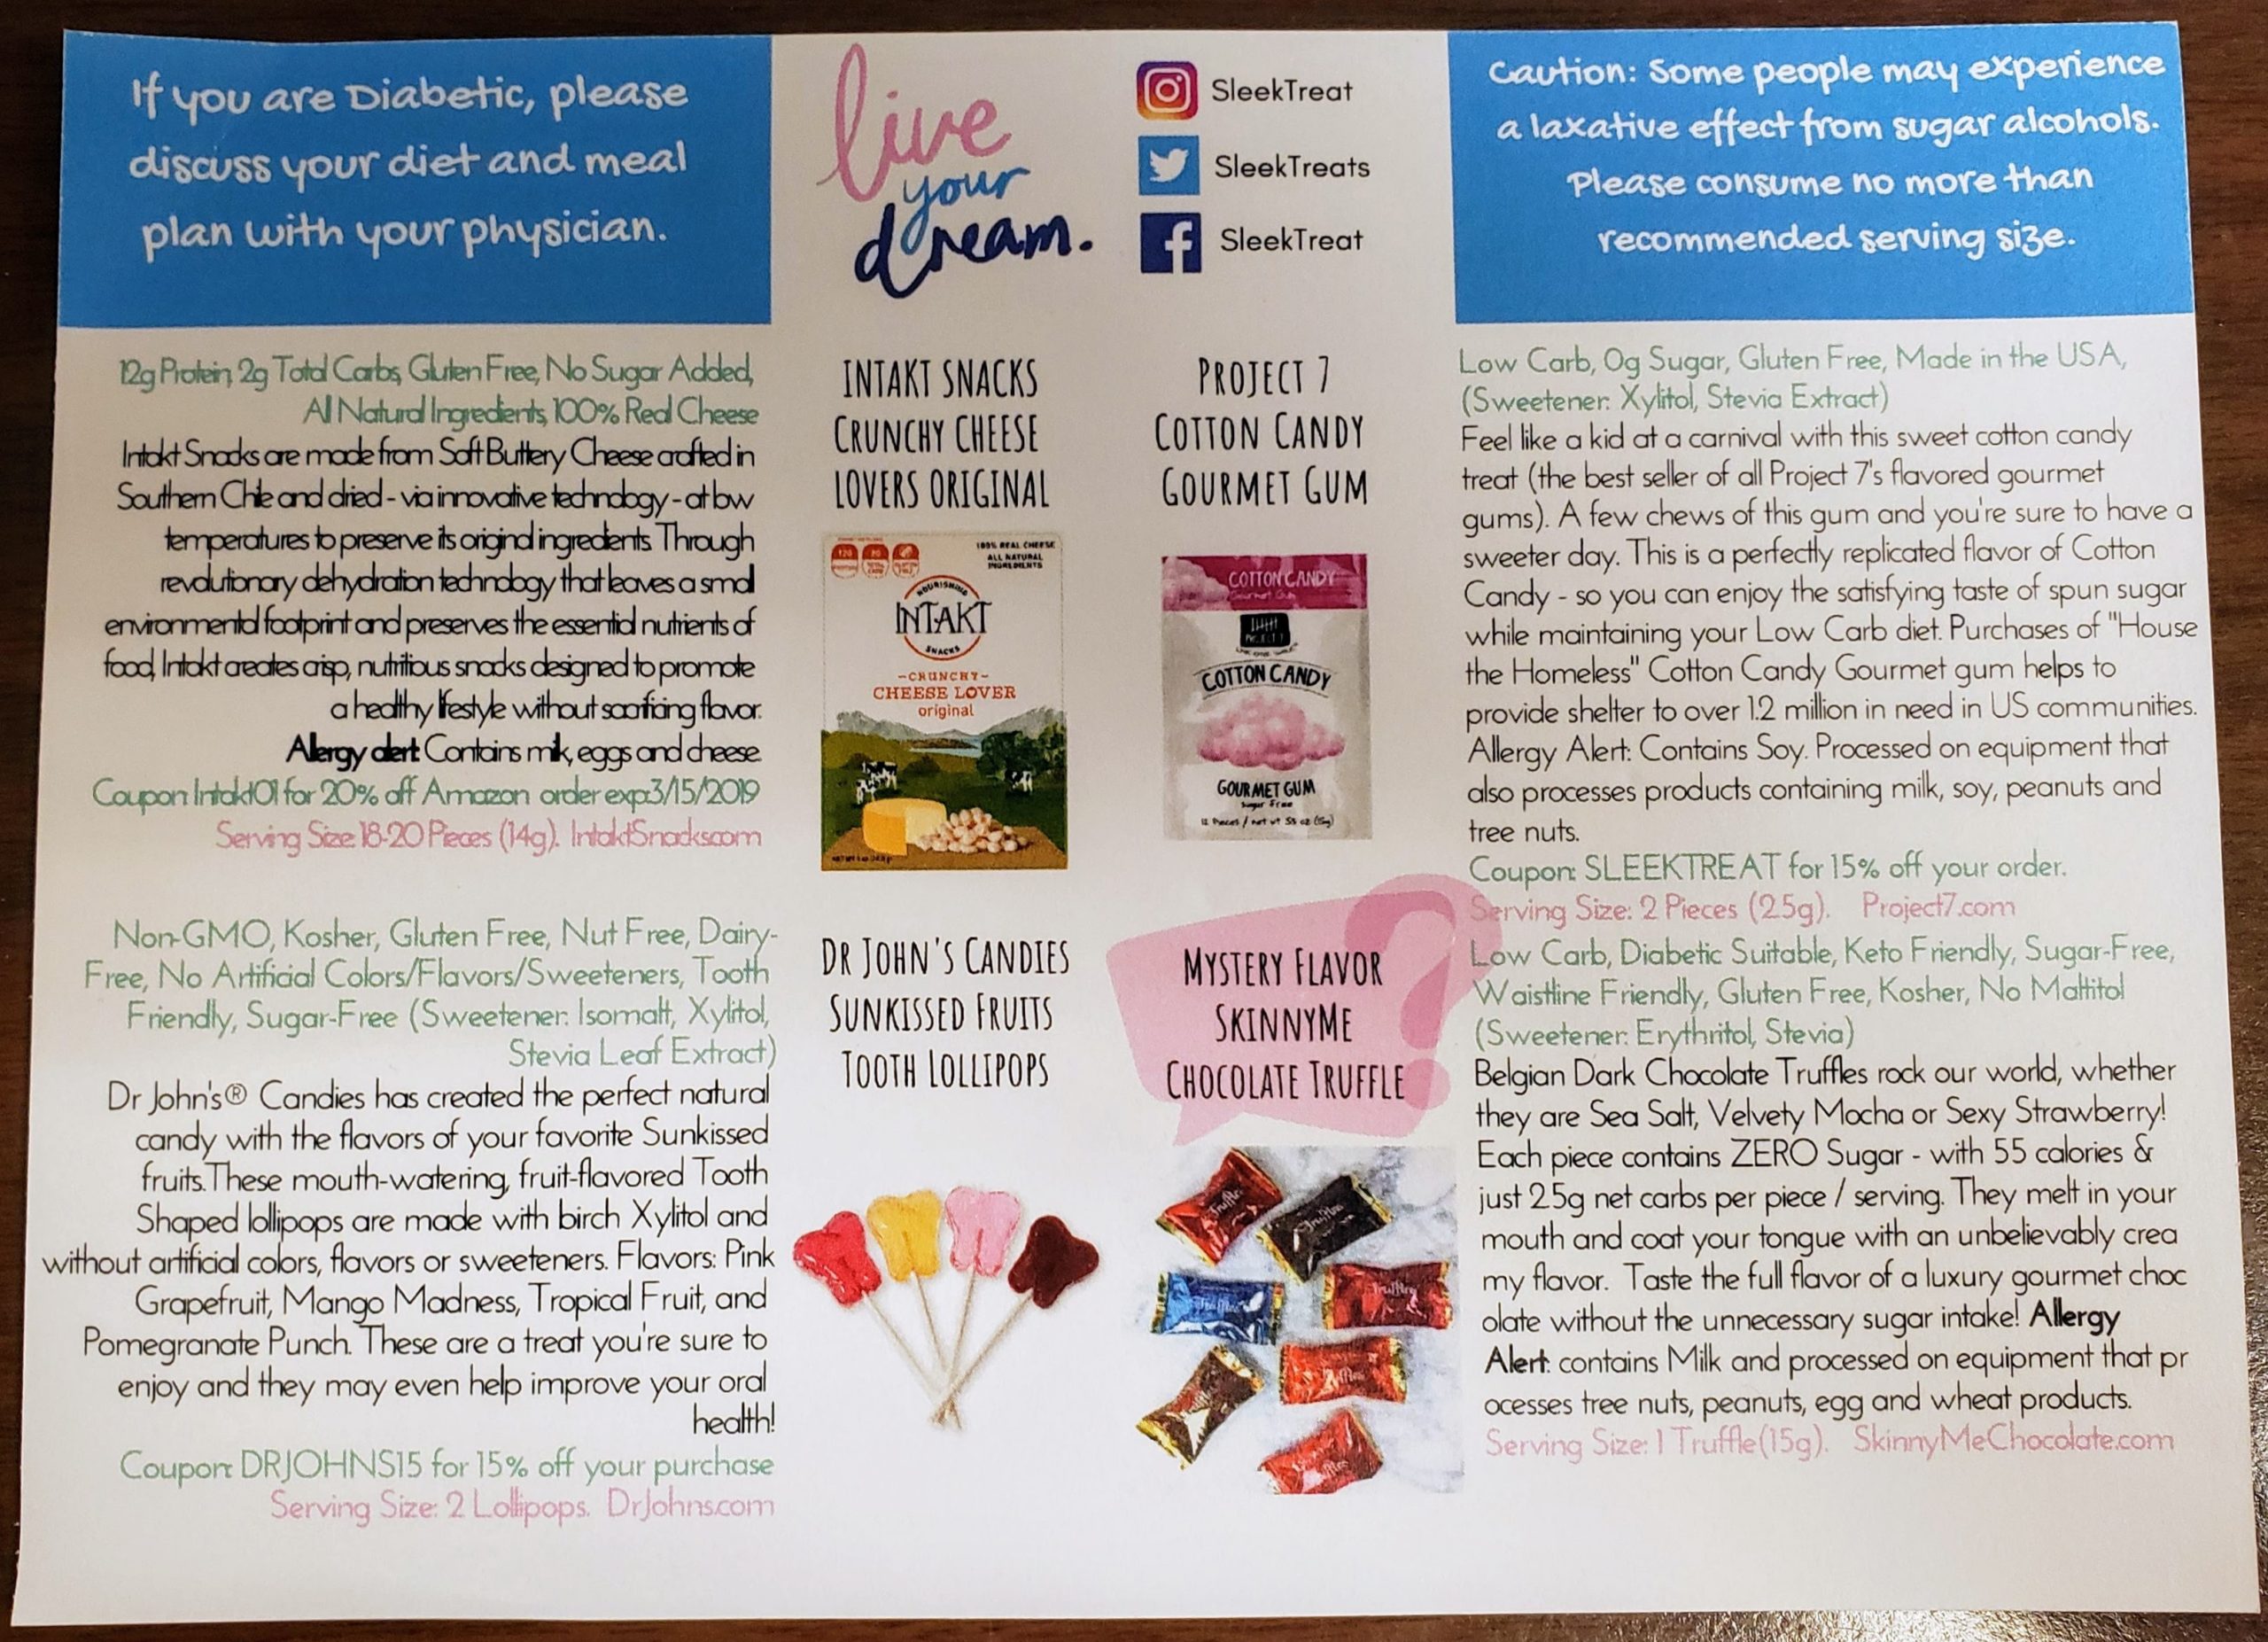 If you are Diabetic, please
discuss your diet and meal
plan with your physician.
live
your
dream.
SleekTreat
SleekTreats
SleekTreat
Caution: Some people may experience
a laxative effect from sugar alcohols.
Please consume no more than
recommended serving size.
12g Protein, 2g Total Carbs, Gluten Free, No Sugar Added,
All Natural Ingredients, 100% Real Cheese
Intakt Snacks are made from Soft Buttery Cheese crafted in
Southern Chile and dried - via innovative technology - at low
temperatures to preserve its original ingredients. Through
revolutionary dehydration technology that leaves a small
environmental footprint and preserves the essential nutrients of
food, Intakt creates crisp, nutritious snacks designed to promote
a healthy lifestyle without sacrificing flavor.
Allergy alert: Contains milk, eggs and cheese.
Coupon: Intakt01 for 20% off Amazon order exp:3/15/2019
Serving Size: 18-20 Pieces (14g). IntaktSnacks.com
INTAKT SNACKS
CRUNCHY CHEESE
LOVERS ORIGINAL
100% REAL CHEESE
ALL NATURAL
INGREDIENTS
NOURISHING
INTAKT
SNACKS
-CRUNCHY-
CHEESE LOVER
original
PROJECT 7
COTTON CANDY
GOURMET GUM
COTTON CANDY
Gourmet Gum
COTTON CANDY
GOURMET GUM
Sugar Free
12 Pieces / net wt
Low Carb, 0g Sugar, Gluten Free, Made in the USA,
(Sweetener: Xylitol, Stevia Extract)
Feel like a kid at a carnival with this sweet cotton candy
treat (the best seller of all Project 7's flavored gourmet
gums). A few chews of this gum and you're sure to have a
sweeter day. This is a perfectly replicated flavor of Cotton
Candy - so you can enjoy the satisfying taste of spun sugar
while maintaining your Low Carb diet. Purchases of "House
the Homeless" Cotton Candy Gourmet gum helps to
provide shelter to over 1.2 million in need in US communities.
Allergy Alert: Contains Soy. Processed on equipment that
also processes products containing milk, soy, peanuts and
tree nuts.
Coupon: SLEEKTREAT for 15% off your order.
Serving Size: 2 Pieces (2.5g). Project7.com
Non-GMO, Kosher, Gluten Free, Nut Free, Dairy-
Free, No Artificial Colors/Flavors/Sweeteners, Tooth
Friendly, Sugar-Free (Sweetener: Isomalt, Xylitol,
Stevia Leaf Extract)
Dr John's® Candies has created the perfect natural
candy with the flavors of your favorite Sunkissed
fruits.These mouth-watering, fruit-flavored Tooth
Shaped lollipops are made with birch Xylitol and
without artificial colors, flavors or sweeteners. Flavors: Pink
Grapefruit, Mango Madness, Tropical Fruit, and
Pomegranate Punch. These are a treat you're sure to
enjoy and they may even help improve your oral
health!
Coupon: DRJOHNS15 for 15% off your purchase
Serving Size: 2 Lollipops. DrJohns.com
DR JOHN'S CANDIES
SUNKISSED FRUITS
TOOTH LOLLIPOPS
MYSTERY FLAVOR
SKINNYME
CHOCOLATE TRUFFLE
Truffles
Truffles
Truffles
Truffles
Truffles
Truffles
Low Carb, Diabetic Suitable, Keto Friendly, Sugar-Free,
Waistline Friendly, Gluten Free, Kosher, No Maltitol
(Sweetener: Erythritol, Stevia)
Belgian Dark Chocolate Truffles rock our world, whether
they are Sea Salt, Velvety Mocha or Sexy Strawberry!
Each piece contains ZERO Sugar - with 55 calories &
just 2.5g net carbs per piece / serving. They melt in your
mouth and coat your tongue with an unbelievably crea
my flavor. Taste the full flavor of a luxury gourmet choc
olate without the unnecessary sugar intake! Allergy
Alert: contains Milk and processed on equipment that pr
ocesses tree nuts, peanuts, egg and wheat products.
Serving Size: 1 Truffle(15g). SkinnyMeChocolate.com